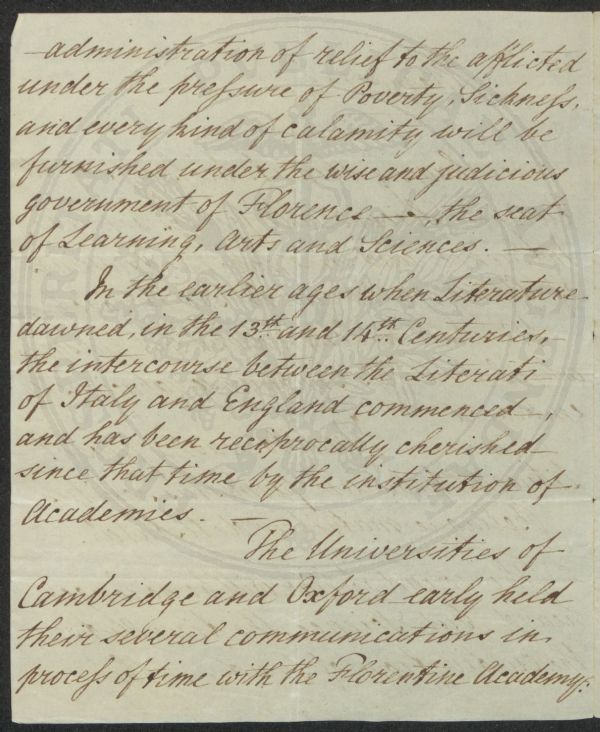 —administration of relief to the afflicted
under the pressure of Poverty, Sickness,
and every kind of calamity will be
furnished under the wise and judicious
government of Florence —, the seat
of Learning, Arts and Sciences. —
In the earlier ages when Literature
dawned, in the 13th and 14th Centuries,—
the intercourse between the Literati
of Italy and England commenced—,
and has been reciprocally cherished
since that time by the institution of
Academies. —
The Universities of
Cambridge and Oxford early held
their several communications in
process of time with the Florentine Academy: